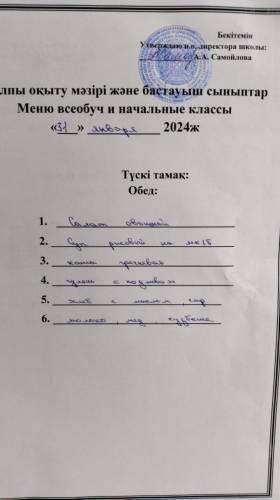 Бекітемін
Утверждаю и.о. директора школы:
А.А. Самойлова
лпы оқыту мәзірі және бастауыш сыныптар
Меню всеобуч и начальные классы
«31» января 2024ж
Түскі тамақ:
Обед:
1. Салат овощной
2. Суп рисовый на мк/б
3. каша гречневая
4. гуляш с подливом
5. хлеб с маслом, сыр
6. молоко, мёд,